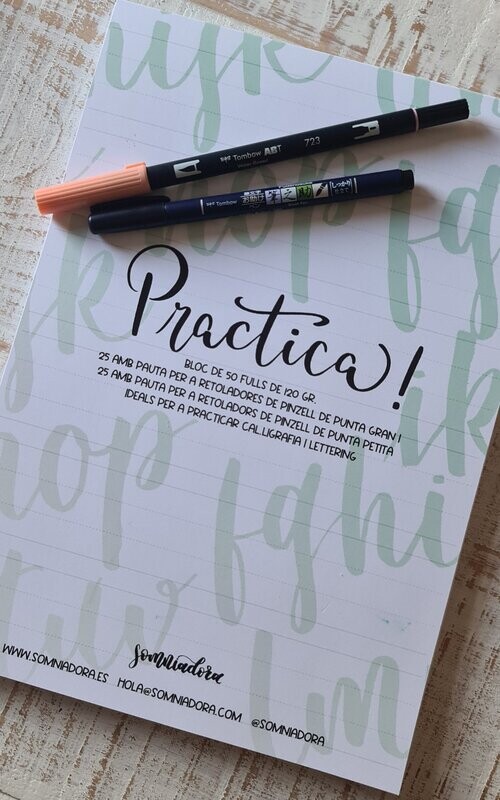 Tombow ABT 723
Tombow
Practica!
BLOC DE 50 FULLS DE 120 GR.
25 AMB PAUTA PER A RETOLADORES DE PINZELL DE PUNTA GRAN I
25 AMB PAUTA PER A RETOLADORS DE PINZELL DE PUNTA PETITA
IDEALS PER A PRACTICAR CAL.LIGRAFIA I LETTERING
somniadora
WWW.SOMNIADORA.ES HOLA@SOMNIADORA.COM @SOMNIADORA